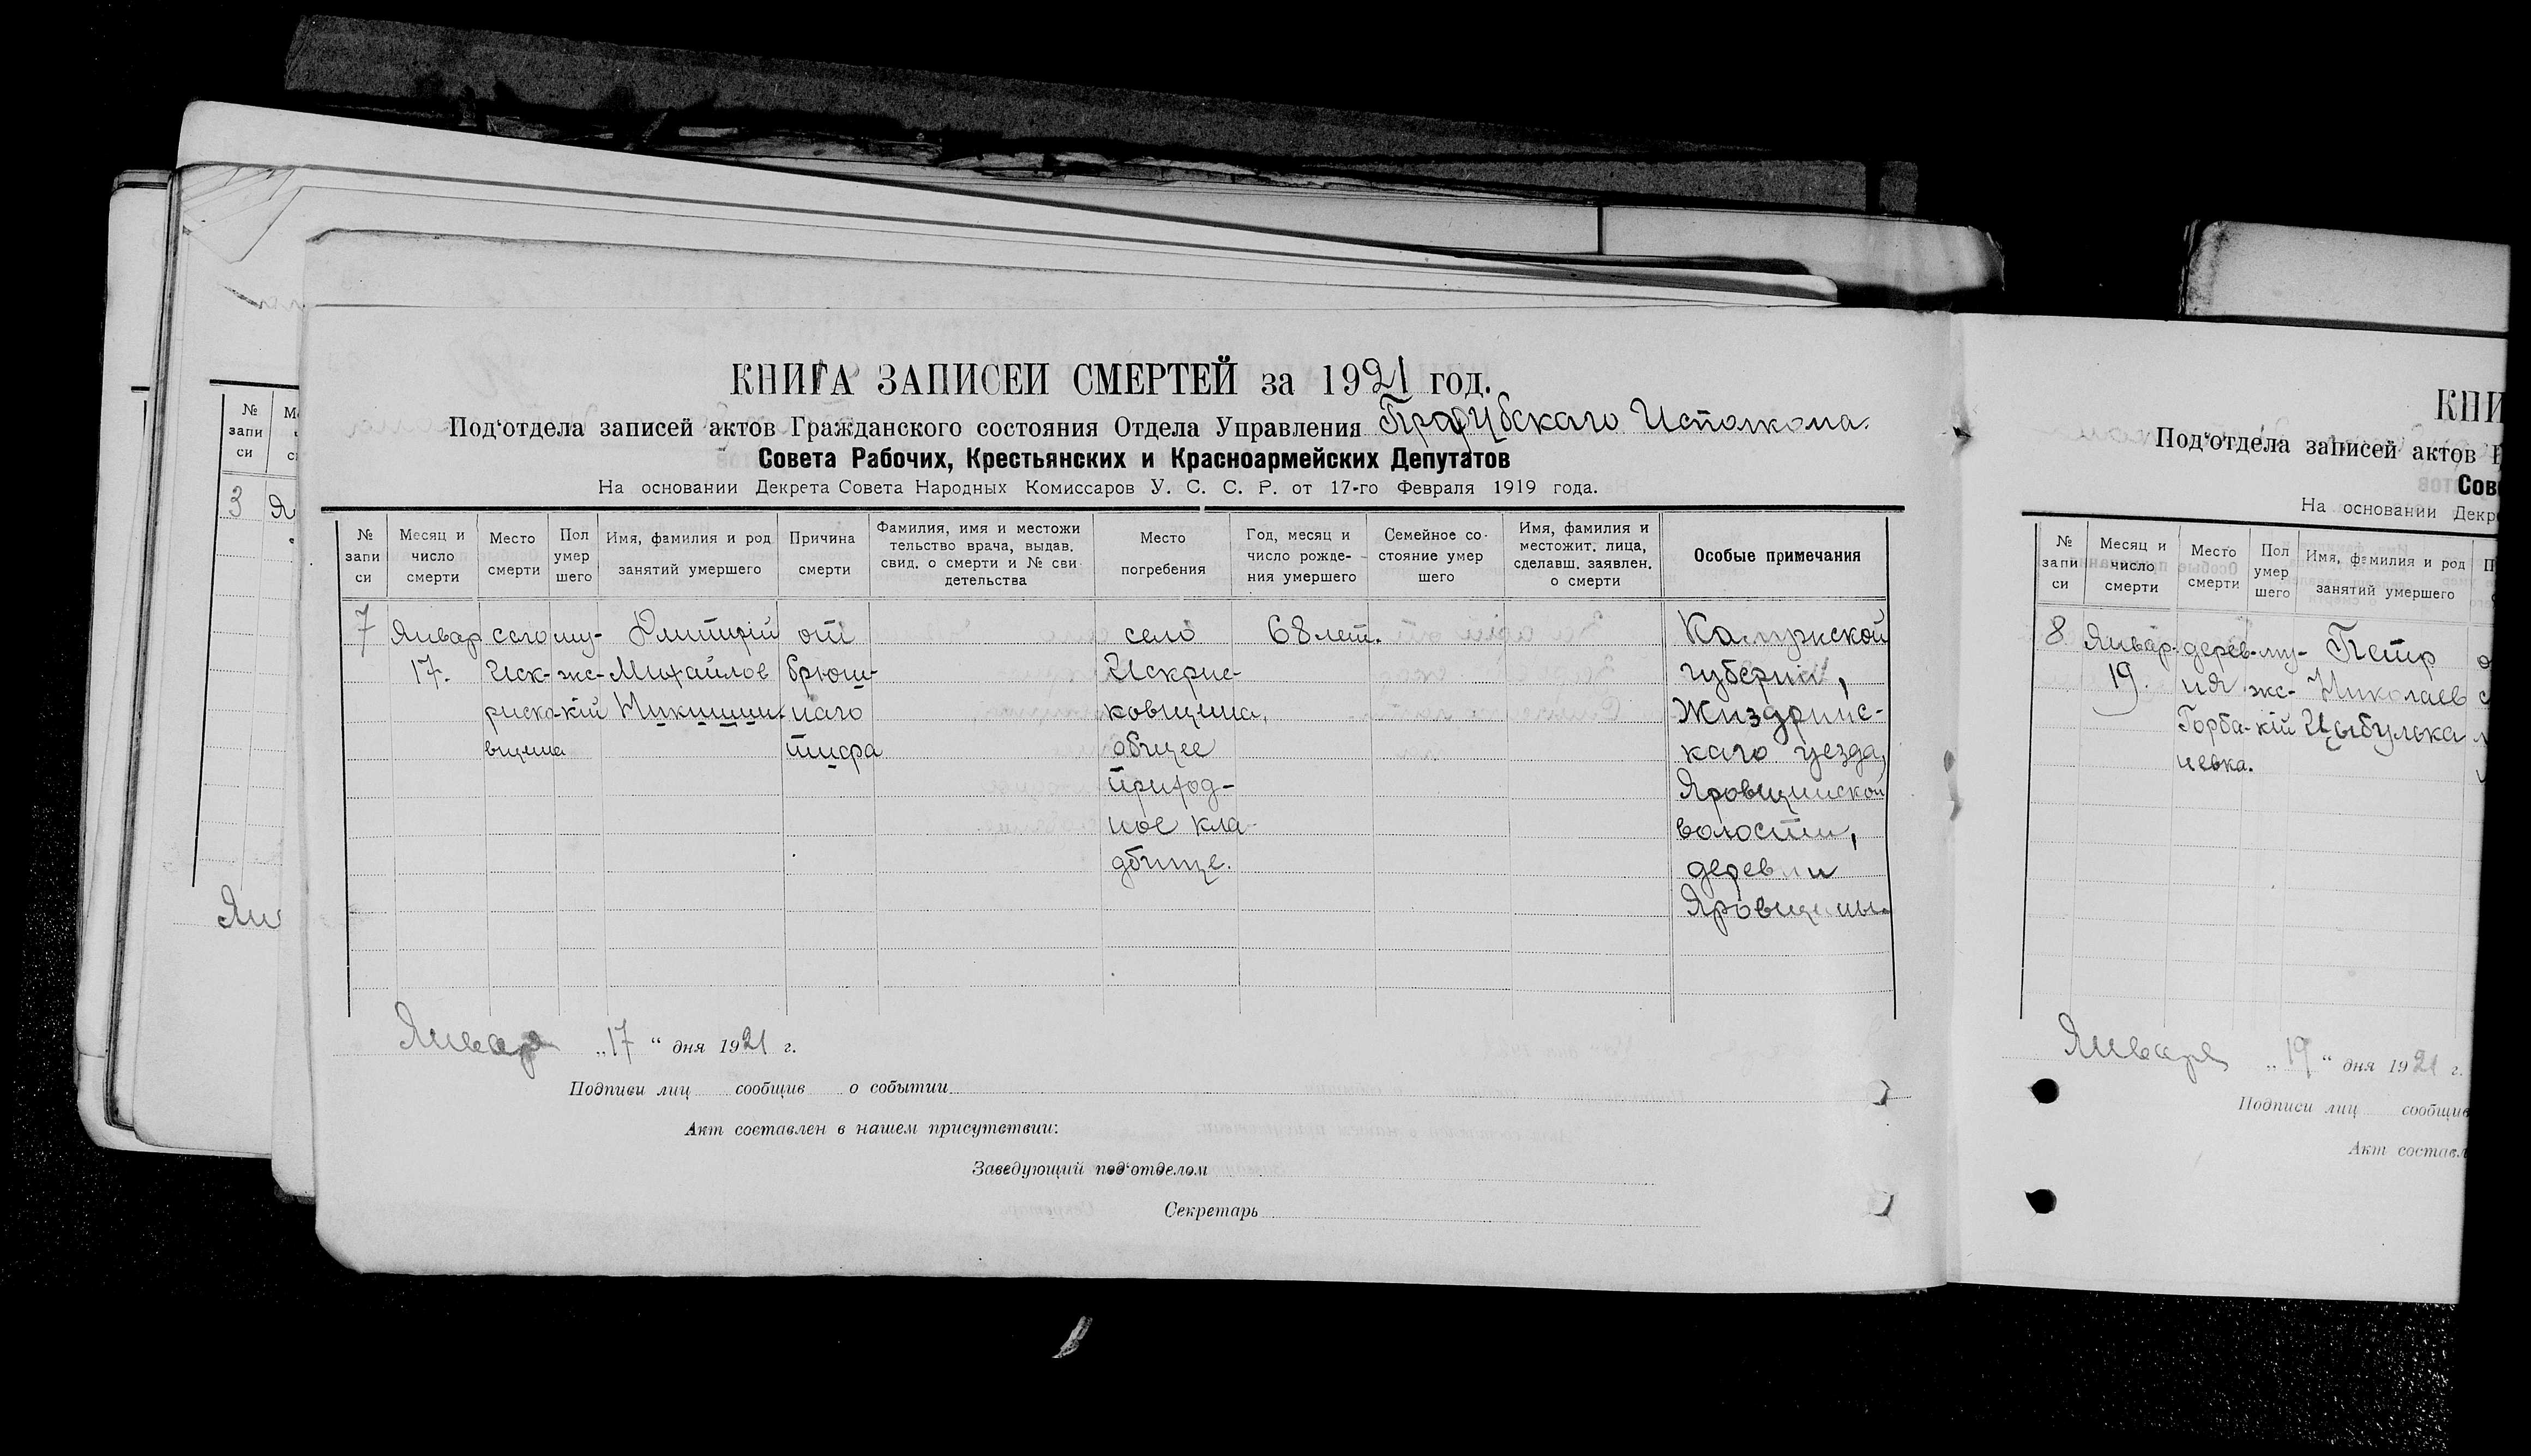 КНИГА ЗАПИСЕЙ СМЕРТЕЙ за 1921 год.
Под‘отдела записей актов Гражданского состояния Отдела Управления Исполкома.
Совета Рабочих, Крестьянских и Красноармейских Депутатов
На основании Декрета Совета Народных Комиссаров У. С. С. Р. от 17-го Февраля 1919 года.
№ запи си
Месяц и число смерти
Место смерти
Пол умер шего
Имя, фамилия и род занятий умершего
Причина смерти
Фамилия, имя и местожи тельство врача, выдав. свид. о смерти и № сви детельства
Место погребения
Год, месяц и число рожде- ния умершего
Семейное со- стояние умер шего
Имя, фамилия и местожит. лица, сделавш. заявлен. о смерти
Особые примечания
7
Январ
17.
село
Иск-
риско-
вщина
му-
жс-
кій
Димитрій
Михайлов
Никишин.
от
брюш-
наго
тифа
село
Искрис-
ковщина,
общее
приход-
ное кла-
дбище.
68 лет.
Калужской
губернии,
Жиздринс-
каго уезда,
Яровщинской
волости,
деревни
Яровщины.
Января „17“ дня 1921 г.
Подписи лиц сообщив о событии
Акт составлен в нашем присутствии:
Заведующий под‘отделом
Секретарь
№ запи си
3
Я
Ян
КНИ
Под‘отдела записей актов Г
Сов
На основании Декр
№ запи си
Месяц и число смерти
Место смерти
Пол умер шего
Имя, фамилия и род занятий умершего
П
8
Январ.
19.
дерев-
ня
Горба-
невка.
му-
жс-
кій
Петр
Николаев
Цыбулька
Января „19“ дня 1921 г.
Подписи лиц сообщив
Акт составл